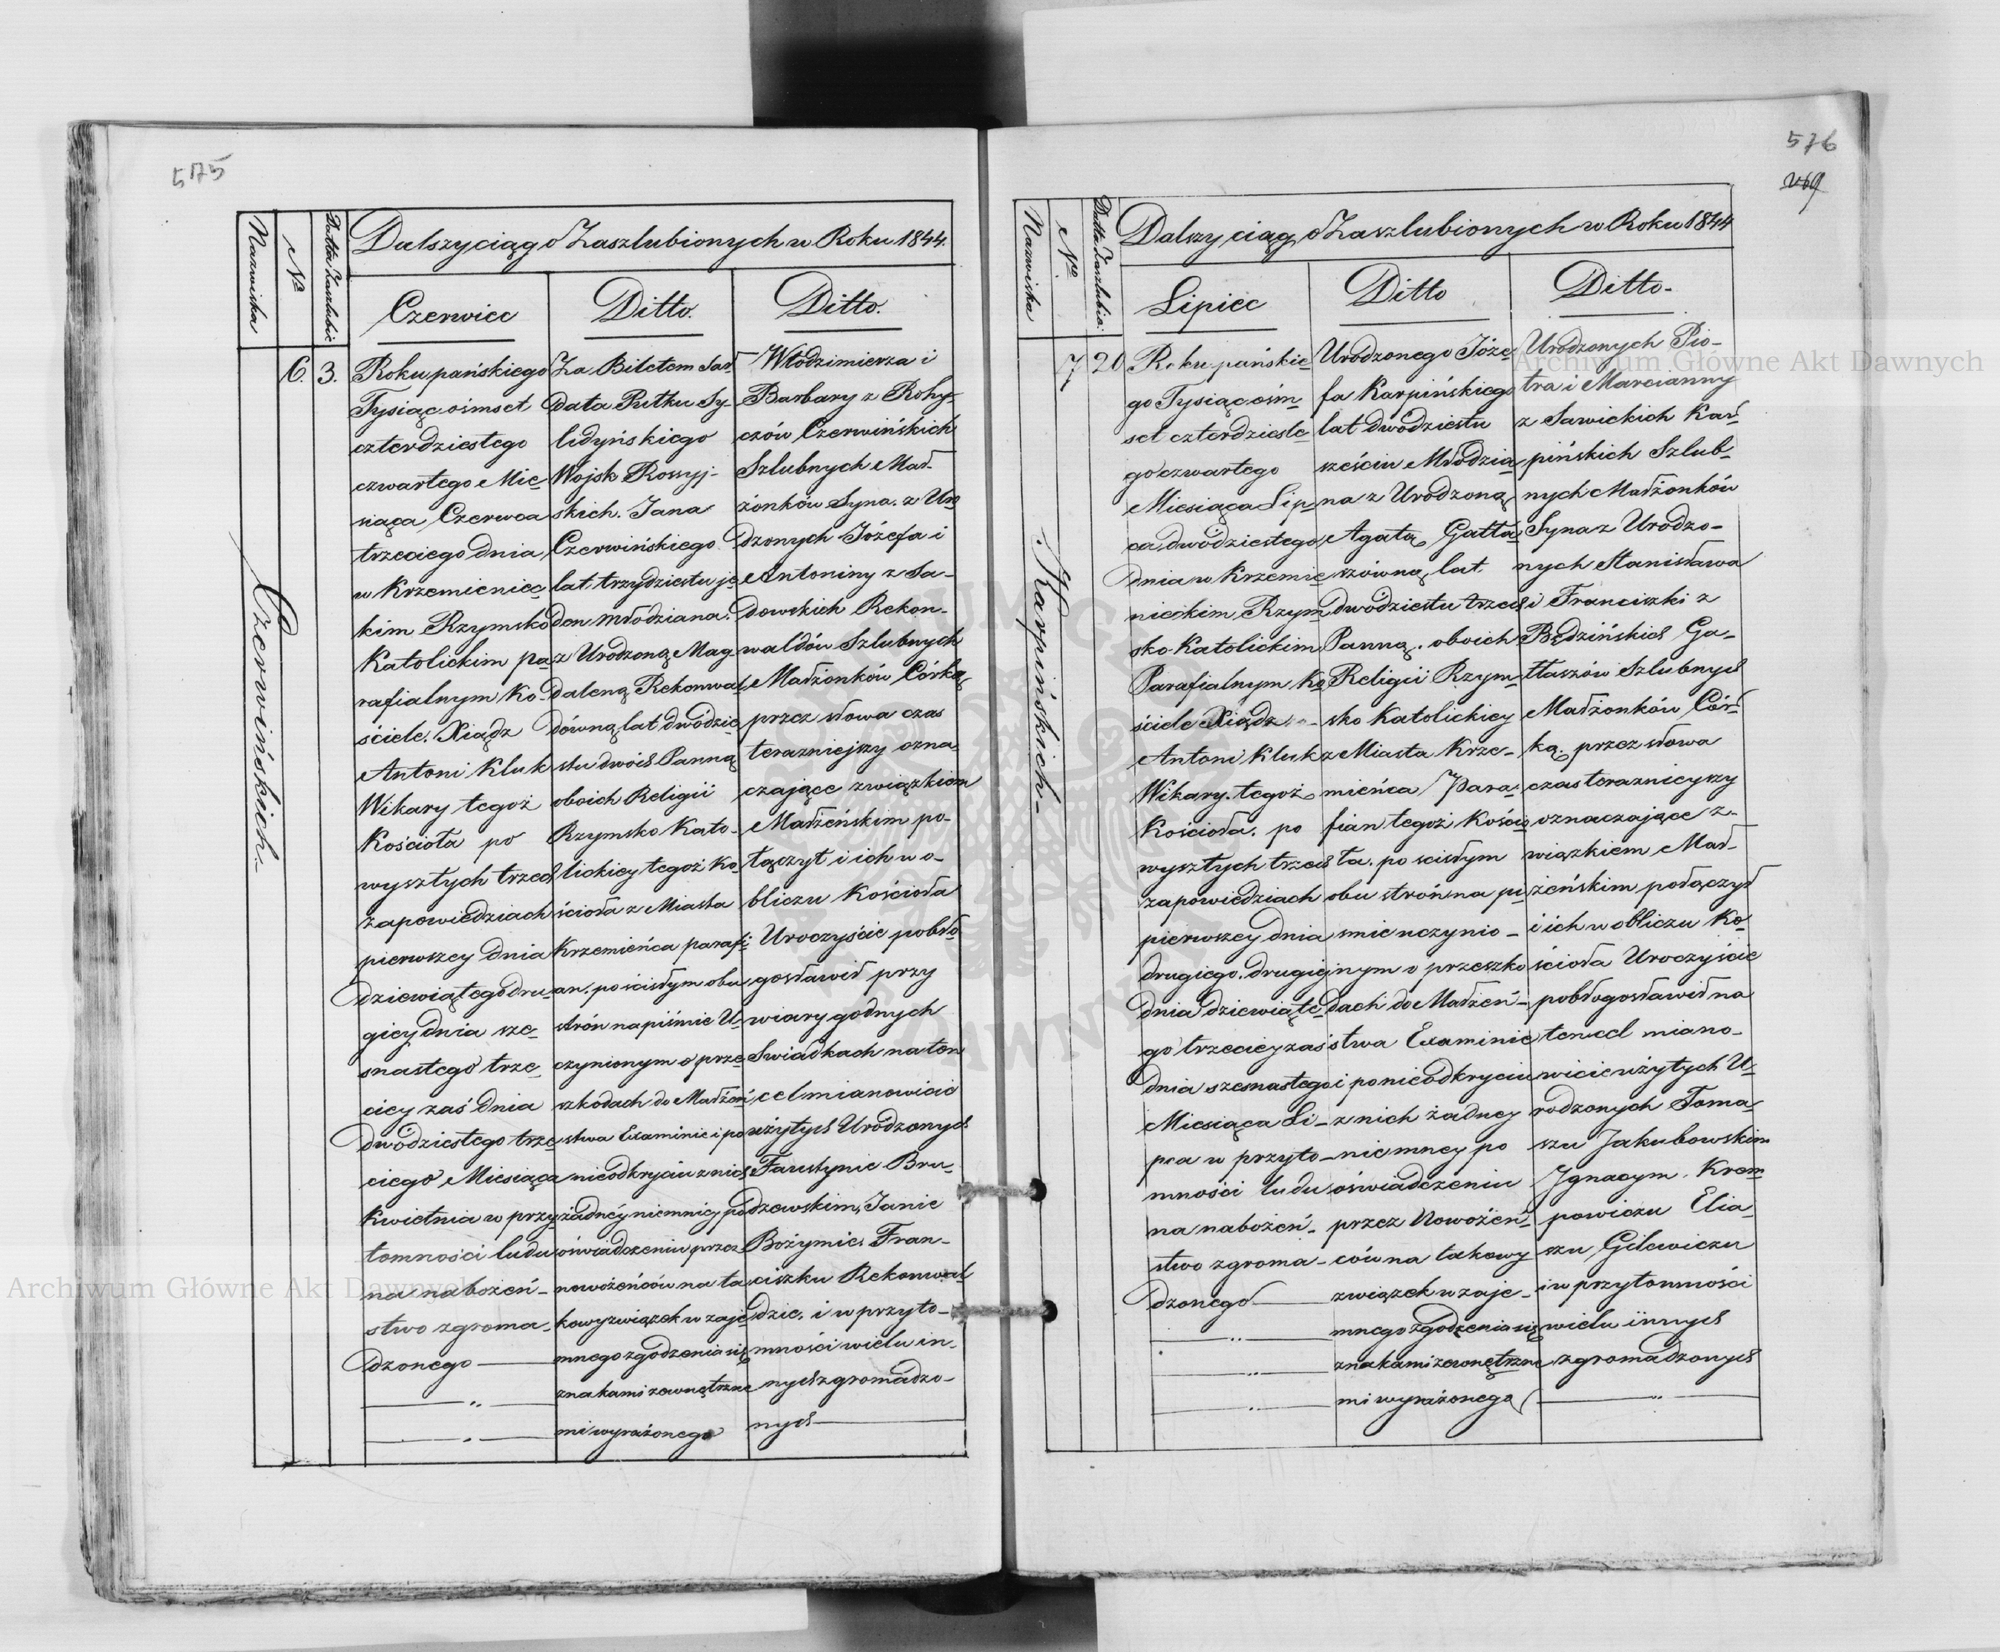 575
Nazwiska
No
Datta Zaszlubić
Dalszy ciąg o Zaszlubionych w Roku 1844.
Czerwiec
6.
3.
Czerwińskich.
Roku pańskiego
Tysiąc óimset
czterdziestego
czwartego Mie-
siąca Czerwca
trzeciego dnia
w Krzemieniec
kim Rzymsko
Katolickim pa-
rafialnym Ko-
ściele. Xiądz
Antoni Kluk
Wikary tegoż
Kościoła po
wyszłych trzech
zapowiedziach
pierwszey dnia
dziewiątego dru-
giey dnia sze-
snastego trze-
ciey zaś dnia
dwódziestego trze-
ciego Miesiąca
Kwietnia w przy-
tomności ludu
na nabożeń-
stwo zgroma-
dzonego
Ditto.
Za Biletem Sał-
data Pułku Sy-
lidyńskiego
Wojsk Rossyj-
skich. Jana
Czerwińskiego
lat trzydziestu je-
den młodziana.
z Urodzoną Mag
daleną Rekonwal-
dówną lat dwódzie
stu dwóch Panną
oboich Religii
Rzymsko Kato-
lickiey tegoż Ko-
ścioła z Miasta
Krzemieńca parafi
an. po ścisłym obu
strón na piśmie U-
czynionym o prze-
szkodach do Małżeń-
stwa Examinie i po
nieodkryciu z nich
żadnéy niemniey po
oświadczeniu przez
nowożeńców na ta
kowy związek w zaje-
mnego zgodzenia się
znakami zewnętrzne
mi wyrażonego
Ditto.
Włodzimierza i
Barbary z Rohy-
czów Czerwińskich
Szlubnych Mał-
żonków Syna. z Uro
dzonych Józefa i
Antoniny z Sa-
dowskich Rekon-
waldów Szlubnych
Małżonków Córką
przez słowa czas
teraznieyszy ozna-
czające związkiem
Małżeńskim po-
łączył i ich w o-
bliczu Kościoła
Uroczyście pobło
gosławił przy
wiary godnych
Swiadkach na ten
cel mianowicie
użytych Urodzonych
Faustynie Bru-
dzewskim, Janie
Bożymie. Fran-
ciszku Rekonwal
dzie. i w przyto-
mności wielu in-
nych zgromadzo-
nych
576
Nazwiska
No
Datta Zaszlubić
Dalszy ciąg o Zaszlubionych w Roku 1844
Lipiec
7
20
Karpińskich
Roku pańskie
go Tysiąc ośm-
set czterdzieste
go czwartego
Miesiąca Lip-
ca dwódziestego
dnia w Krzemie
nieckim Rzym
sko-Katolickim
Parafialnym Ko
ściele Xiądz
Antoni Kluk
Wikary tegoż
Kościoła. po
wyszłych trzech
zapowiedziach
pierwszey dnia
drugiego. drugiey
dnia dziewiąte
go trzeciey zaś
dnia szesnastego
Miesiąca Li-
pca w przyto-
mności ludu
na nabożeń-
stwo zgroma-
dzonego
Ditto
Urodzonego Józe
fa Karpińskiego
lat dwódziestu
sześciu Młodzia
na z Urodzoną
Agatą Gatta-
szówną lat
dwódziestu trzech
Panną. oboich
Religii Rzym-
sko Katolickiey
z Miasta Krze-
mieńca Para-
fian tegoż Kościo
ła. po ścisłym
obu strón na pi
smie uczynio-
nym o przeszko
dach do Małżeń-
stwa Examinie
i po nieodkryciu
z nich żadney
niemney po
oświadczeniu
przez Nowożeń-
ców na takowy
związek w zaje-
mnego zgodzenia się
znakami zewnętrzne
mi wyrażonego
Ditto.
Urodzonych Pio-
tra i Marcianny
z Sawickich Kar-
pińskich Szlub-
nych Małżonków
Syna z Urodzo-
nych Stanisława
i Franciszki z
Będzińskich Ga-
tłaszów Szlubnych
Małżonków Cór-
ką. przez słowa
czas teraznieyszy
oznaczające z-
wiązkiem Mał-
żeńskim połączył
i ich w obliczu Ko-
ścioła Uroczyście
pobłogosławił na
ten cel miano-
wicie użytych U-
rodzonych Toma-
szu Jakubowskim
Ignacym Krem
powiczu Elia-
szu Gilewiczu
i w przytomności
wielu innych
zgromadzonych
Archiwum Główne Akt Dawnych
Archiwum Główne Akt Dawnych